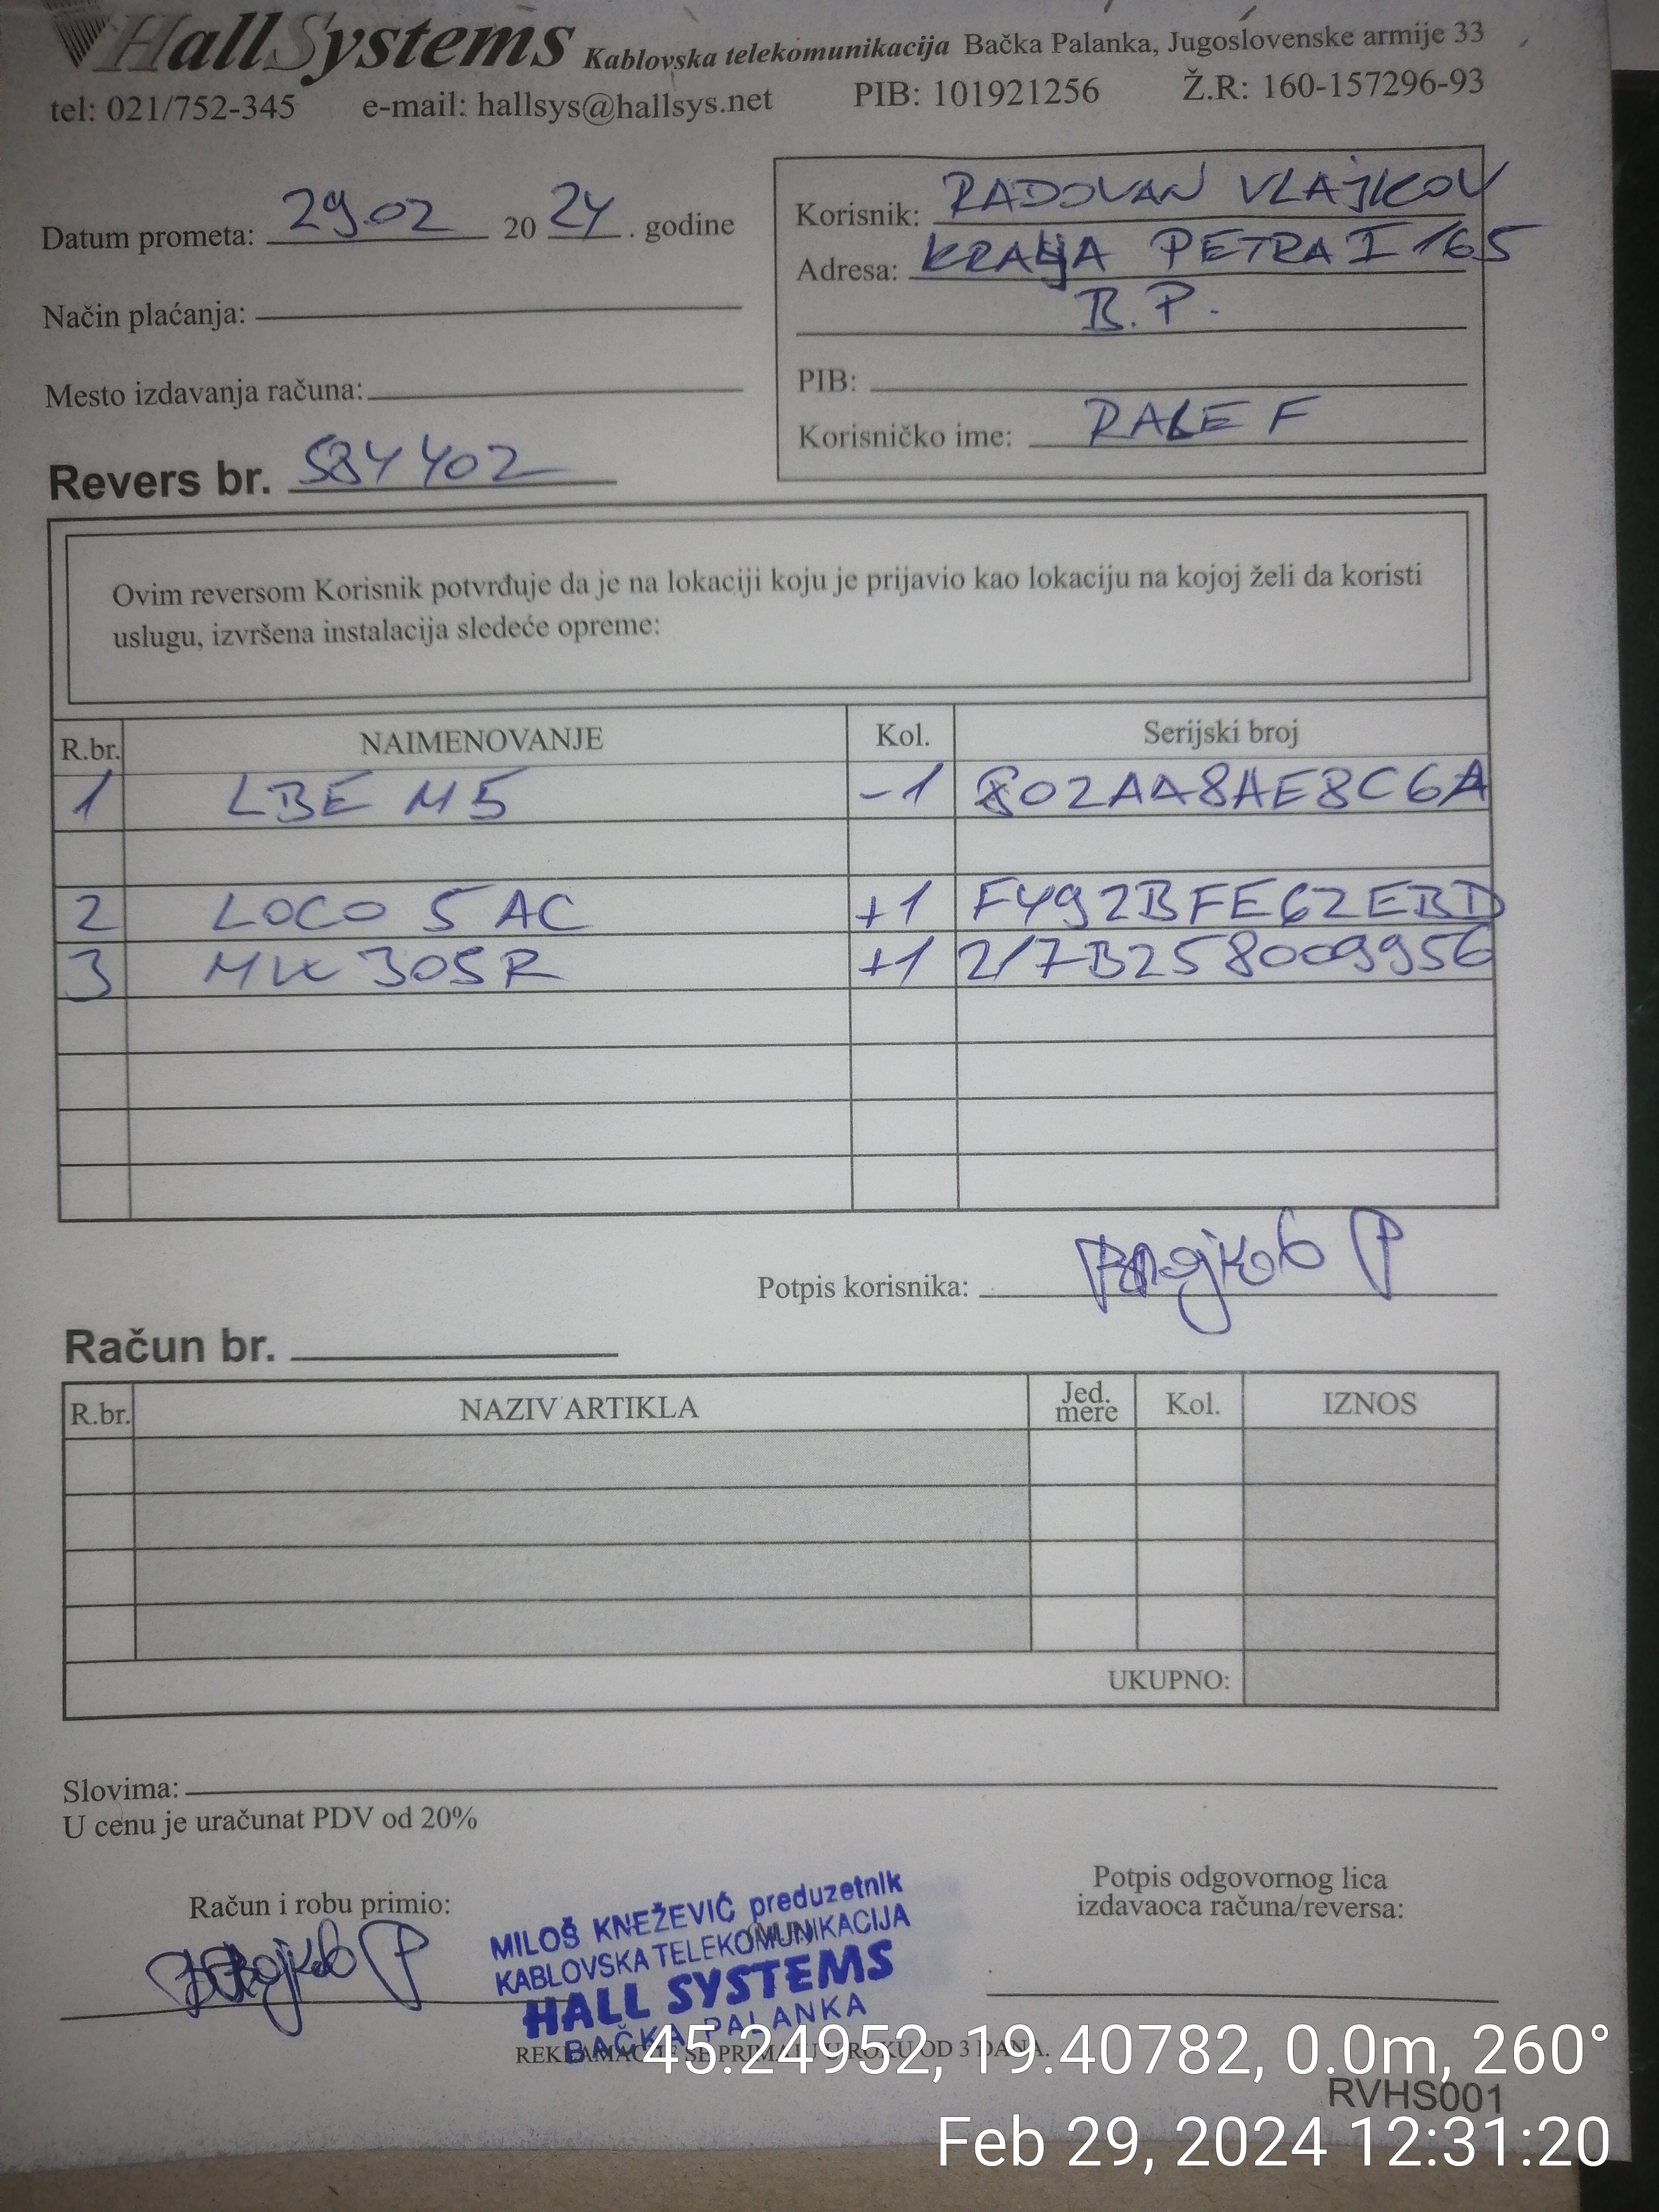 HallSystems Kablovska telekomunikacija Bačka Palanka, Jugoslovenske armije 33
tel: 021/752-345 e-mail: hallsys@hallsys.net PIB: 101921256 Ž.R: 160-157296-93
Datum prometa: 29.02 2024. godine
Način plaćanja:
Mesto izdavanja računa:
Korisnik: RADOVAN VLAJKOV
Adresa: KRALJA PETRA I 165
B.P.
PIB:
Korisničko ime: RALE F
Revers br. 584402
Ovim reversom Korisnik potvrđuje da je na lokaciji koju je prijavio kao lokaciju na kojoj želi da koristi
uslugu, izvršena instalacija sledeće opreme:
R.br. NAIMENOVANJE Kol. Serijski broj
1 LBE M5 -1 802AA8AE8C6A
2 LOCO 5 AC +1 F492BFE62EBD
3 MW 305R +1 217B258009956
Potpis korisnika:
Račun br.
R.br. NAZIV ARTIKLA Jed. mere Kol. IZNOS
UKUPNO:
Slovima:
U cenu je uračunat PDV od 20%
Račun i robu primio:
MILOŠ KNEŽEVIĆ preduzetnik
KABLOVSKA TELEKOMUNIKACIJA
HALL SYSTEMS
BAČKA PALANKA
Potpis odgovornog lica
izdavaoca računa/reversa:
REKLAMACIJE SE PRIMAJU U ROKU OD 3 DANA.
45.24952, 19.40782, 0.0m, 260°
RVHS001
Feb 29, 2024 12:31:20